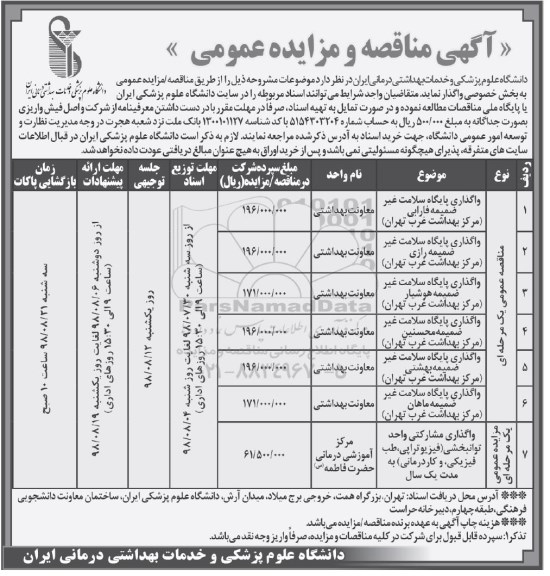 « آگهی مناقصه و مزایده عمومی »
دانشگاه علوم پزشکی و خدمات بهداشتی درمانی ایران
دانشگاه علوم پزشکی و خدمات بهداشتی درمانی ایران در نظر دارد موضوعات مشروحه ذیل را از طریق مناقصه/مزایده عمومی
به بخش خصوصی واگذار نماید. متقاضیان واجد شرایط می توانند اسناد مربوطه را در سایت دانشگاه علوم پزشکی ایران
یا پایگاه ملی مناقصات مطالعه نموده و در صورت تمایل به تهیه اسناد، صرفا در مهلت مقرر با در دست داشتن معرفینامه از شرکت و اصل فیش واریزی
بصورت جداگانه به مبلغ ۵۰۰/۰۰۰ ریال به حساب شماره ۵۱۵۴۳۰۳۲۰۴ با کد شناسه ۱۳۰۰۱۰۱۱۲۷ بانک ملت نزد شعبه هجرت در وجه مدیریت نظارت و
توسعه امور عمومی دانشگاه، جهت خرید اسناد به آدرس ذکر شده مراجعه نمایند. لازم به ذکر است دانشگاه علوم پزشکی ایران در قبال اطلاعات
سایت های متفرقه، پذیرای هیچگونه مسئولیتی نمی باشد و پس از خرید اوراق به هیچ عنوان مبالغ دریافتی عودت داده نخواهد شد.
ردیف نوع موضوع نام واحد مبلغ سپرده شرکت در مناقصه/مزایده(ریال) مهلت توزیع اسناد جلسه توجیهی مهلت ارائه پیشنهادات زمان بازگشایی پاکات
۱ واگذاری پایگاه سلامت غیر ضمیمه فارابی (مرکز بهداشت غرب تهران) معاونت بهداشتی ۱۹۶/۰۰۰/۰۰۰
۲ واگذاری پایگاه سلامت غیر ضمیمه رازی (مرکز بهداشت غرب تهران) معاونت بهداشتی ۱۹۶/۰۰۰/۰۰۰
۳ واگذاری پایگاه سلامت غیر ضمیمه هوشیار (مرکز بهداشت غرب تهران) معاونت بهداشتی ۱۷۱/۰۰۰/۰۰۰
۴ واگذاری پایگاه سلامت غیر ضمیمه محسنین (مرکز بهداشت غرب تهران) معاونت بهداشتی ۱۹۶/۰۰۰/۰۰۰
۵ واگذاری پایگاه سلامت غیر ضمیمه بهشتی (مرکز بهداشت غرب تهران) معاونت بهداشتی ۱۹۶/۰۰۰/۰۰۰
۶ واگذاری پایگاه سلامت غیر ضمیمه ماهان (مرکز بهداشت غرب تهران) معاونت بهداشتی ۱۷۱/۰۰۰/۰۰۰
مناقصه عمومی یک مرحله ای
۷ مزایده عمومی یک مرحله ای واگذاری مشارکتی واحد توانبخشی(فیزیوتراپی،طب فیزیکی، و کاردرمانی) به مدت یک سال مرکز آموزشی درمانی حضرت فاطمه(س) ۶۱/۵۰۰/۰۰۰
از روز سه شنبه ۹۸/۰۷/۳۰ لغایت روز شنبه ۹۸/۰۸/۰۴ (ساعت ۹ الی ۱۵:۳۰ روزهای اداری)
روز یکشنبه ۹۸/۰۸/۱۲
از روز دوشنبه ۹۸/۰۸/۰۶ لغایت روز یکشنبه ۹۸/۰۸/۱۹ (ساعت ۹ الی ۱۵:۳۰ روزهای اداری)
سه شنبه ۹۸/۰۸/۲۱ ساعت ۱۰ صبح
ParsNamadData
پایگاه اطلاع رسانی مناقصه و مزایده
۰۲۱-۸۸۳۴۹۶۷۰-۵
*** آدرس محل دریافت اسناد: تهران، بزرگراه همت، خروجی برج میلاد، میدان آرش، دانشگاه علوم پزشکی ایران، ساختمان معاونت دانشجویی
فرهنگی، طبقه چهارم، دبیرخانه حراست
*** هزینه چاپ آگهی به عهده برنده مناقصه/مزایده می باشد.
تذکر۱: سپرده قابل قبول برای شرکت در کلیه مناقصات و مزایده، صرفاً واریز وجه نقد می باشد.
دانشگاه علوم پزشکی و خدمات بهداشتی درمانی ایران